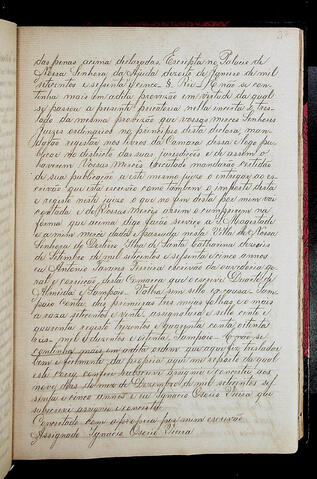 das penas acima declaradas. Escripta no Palacio de
Nossa Senhora da Ajuda dezoito de Janeiro de mil
setecentos e sessenta e cinco = § Rei // E não se con-
tinha mais em a dita provizão em virtude da qual
se passou a presente precatoria nella incerta o tres-
lado da mesma provizão que vossas mercês Senhores
Juizes ordinarios no principio desta declara, man-
darão registar nos livros da Camara dessa e logo pu-
blicar no districto da sua jurisdição e de assim o
haverem Vossas Mercês executado mandarão certidão
de sua publicação a este mesmo juizo e entregar ao es-
crivão que esta escreveo como tambem o importe desta
e registo neste juizo o que no fim desta por mim vai
contado e de Vossas Mercês assim o cumprirem na
forma que acima digo farão serviço a S. Magestade
e a mim mercê dada e passada nesta Villa de Nossa
Senhora do Desterro Ilha de Santa Catharina dezaseis
de Setembro de mil setecentos e sessenta e cinco annos
eu Antonio Tavares Pereira escrivão da ouvidoria ge-
ral e correição desta Comarca que o escrevi Duarte de
Almeida e Sampaio. Valha sem sello ex causa. Sam-
paio Conta das primeiras tres mejas folhas e mais
a raza setecentos e vinte, assignatura e sello cento e
quarenta registo trezentos e quarenta conta oitenta
reis mil e duzentos e oitenta Sampaio = E não se
continha mais em a dita ordem que aqui fiz tresladar
bem e fielmente da propria a qual me reporto da qual
este conferi subscrevi assignei e concertei aos
nove dias do mez de Dezembro de mil setecentos ses-
senta e cinco annos e eu Ignacio Osorio Vieira que
subscrevi assignei e concertei
Concertado com a propria por mim escrivão
Assignado Ignacio Osorio Vieira